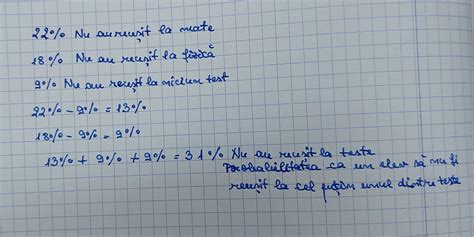 22% Nu au reușit la mate
18% Nu au reușit la fizică
9% Nu au reușit la niciun test
22% - 9% = 13%
18% - 9% = 9%
13% + 9% + 9% = 31% Nu au reușit la teste
Probabilitatea ca un elev să nu fi
reușit la cel puțin unul dintre teste